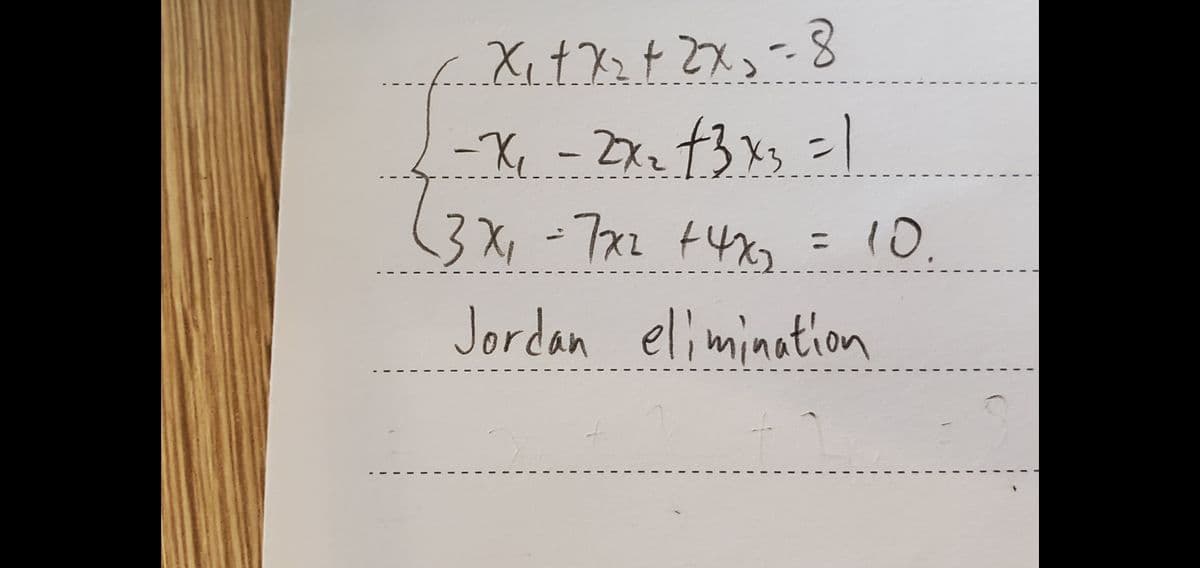 x₁ + x₂ + 2x₃ = 8
-x₁ - 2x₂ + 3x₃ = 1
3x₁ - 7x₂ + 4x₃ = 10.
Jordan elimination